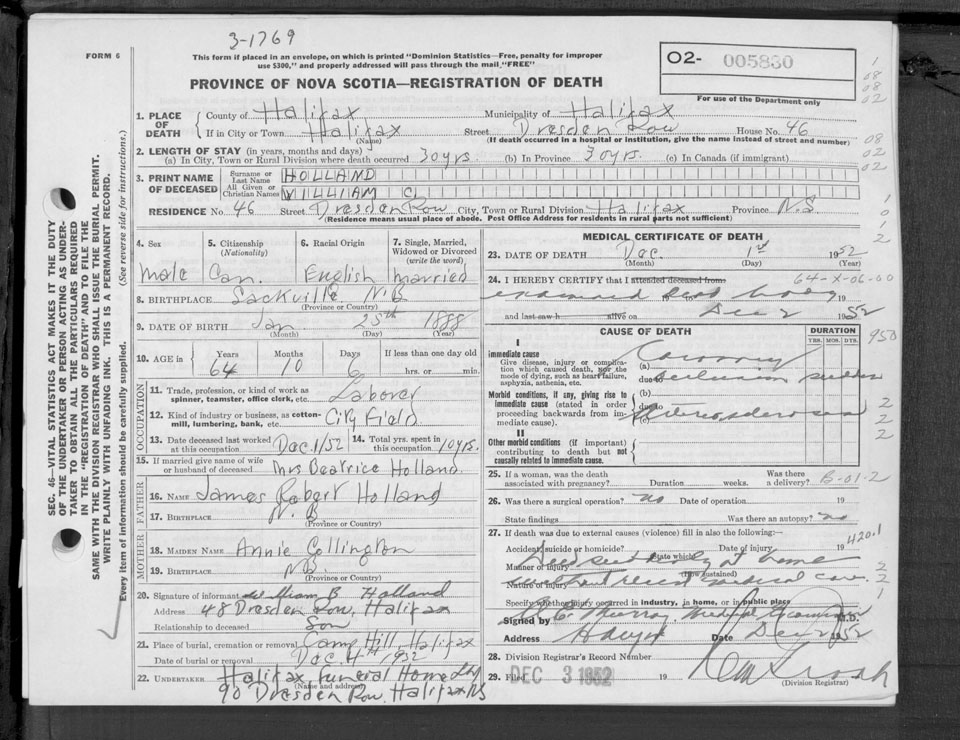 3-1769
FORM 6
This form if placed in an envelope, on which is printed "Dominion Statistics—Free, penalty for improper
use $300," and properly addressed will pass through the mail "FREE"
PROVINCE OF NOVA SCOTIA—REGISTRATION OF DEATH
O2- 005830
For use of the Department only
1. PLACE OF DEATH { County of Halifax Municipality of Halifax
If in City or Town Halifax Street Dresden Row House No. 46
(Name) (If death occurred in a hospital or institution, give the name instead of street and number)
2. LENGTH OF STAY (in years, months and days)
(a) In City, Town or Rural Division where death occurred 30 yrs. (b) In Province 30 yrs. (c) In Canada (if immigrant)
3. PRINT NAME OF DECEASED { Surname or Last Name HOLLAND
All Given or Christian Names WILLIAM C.
RESIDENCE No. 46 Street Dresden Row City, Town or Rural Division Halifax Province N.S
(Residence means usual place of abode. Post Office Address for residents in rural parts not sufficient)
4. Sex male
5. Citizenship (Nationality) Can.
6. Racial Origin English
7. Single, Married, Widowed or Divorced (write the word) married
8. BIRTHPLACE Sackville N.B
(Province or Country)
9. DATE OF BIRTH Jan. 25th 1888
(Month) (Day) (Year)
10. AGE in { Years 64 Months 10 Days 6 If less than one day old
hrs. or min.
OCCUPATION
11. Trade, profession or kind of work as
spinner, teamster, office clerk, etc. Laborer
12. Kind of industry or business, as cotton-
mill, lumbering, bank, etc. City Field
13. Date deceased last worked at this occupation Dec. 1/52 14. Total yrs. spent in this occupation 10 yrs.
15. If married give name of wife
or husband of deceased Mrs Beatrice Holland.
FATHER
16. NAME James Robert Holland
17. BIRTHPLACE N.B
(Province or Country)
MOTHER
18. MAIDEN NAME Annie
19. BIRTHPLACE N.B.
(Province or Country)
20. Signature of informant William B Holland
Address 48 Dresden Row, Halifax
Relationship to deceased Son
21. Place of burial, cremation or removal Camp Hill, Halifax
Date of burial or removal Dec. 4th 1952
22. UNDERTAKER Halifax Funeral Home Ltd
(Name and address)
90 Dresden Row, Halifax NS
MEDICAL CERTIFICATE OF DEATH
23. DATE OF DEATH Dec. 1st 1952
(Month) (Day) (Year)
64-X-06-00
24. I HEREBY CERTIFY that I attended deceased from
examined dead body 19
and last saw h alive on Dec 2 1952
CAUSE OF DEATH
DURATION
YRS. MOS. DYS.
950
I
Immediate cause
Give disease, injury or complication which caused death, not the mode of dying, such as heart failure, asphyxia, asthenia, etc.
(a) Coronary
due to occlusion sudden
Morbid conditions, if any, giving rise to immediate cause (stated in order proceeding backwards from immediate cause).
(b)
due to arteriosclerosis
(c)
II
Other morbid conditions (if important) contributing to death but not causally related to immediate cause.
25. If a woman, was the death Was there
associated with pregnancy? Duration weeks. a delivery? B-01-2
26. Was there a surgical operation? no Date of operation 19
State findings Was there an autopsy? no
27. If death was due to external causes (violence) fill in also the following:—
420.1
Accident, suicide or homicide? Date of injury 19
(State which)
Manner of injury at home
(How sustained)
Nature of injury without recent medical care.
Specify whether injury occurred in industry, in home, or in public place
Signed by Murray, Medical Examiner M.D.
Address Halifax Date Dec 2 1952
28. Division Registrar's Record Number
29. Filed DEC 3 1952 19
(Division Registrar)
SEC. 46—VITAL STATISTICS ACT MAKES IT THE DUTY
OF THE UNDERTAKER OR PERSON ACTING AS UNDER-
TAKER TO OBTAIN ALL THE PARTICULARS REQUIRED
IN THE "REGISTRATION OF DEATH" AND TO FILE THE
SAME WITH THE DIVISION REGISTRAR WHO SHALL ISSUE THE BURIAL PERMIT.
WRITE PLAINLY WITH UNFADING INK. THIS IS A PERMANENT RECORD.
Every item of information should be carefully supplied. (See reverse side for instructions.)
1
08
08
02
08
02
02
1
0
1
2
2
2
2
2
2
1